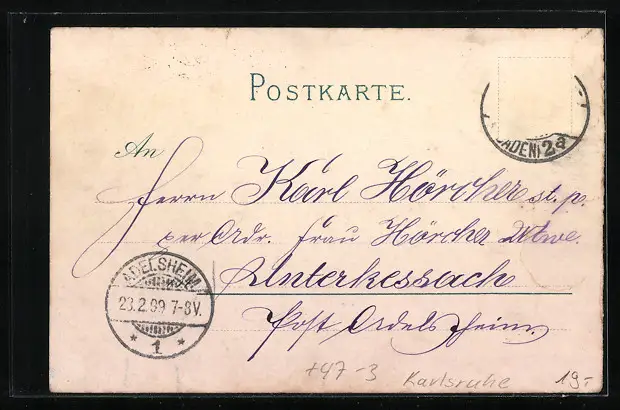 POSTKARTE.
(BADEN) 2a
An
Herrn Karl Hörcher st. p.
per Adr. Frau Hörcher Wtwe.
Unterkessach
Post Adelsheim.
ADELSHEIM
23.2.99 7-8V.
* 1 *
+47 -3 Karlsruhe 19.-